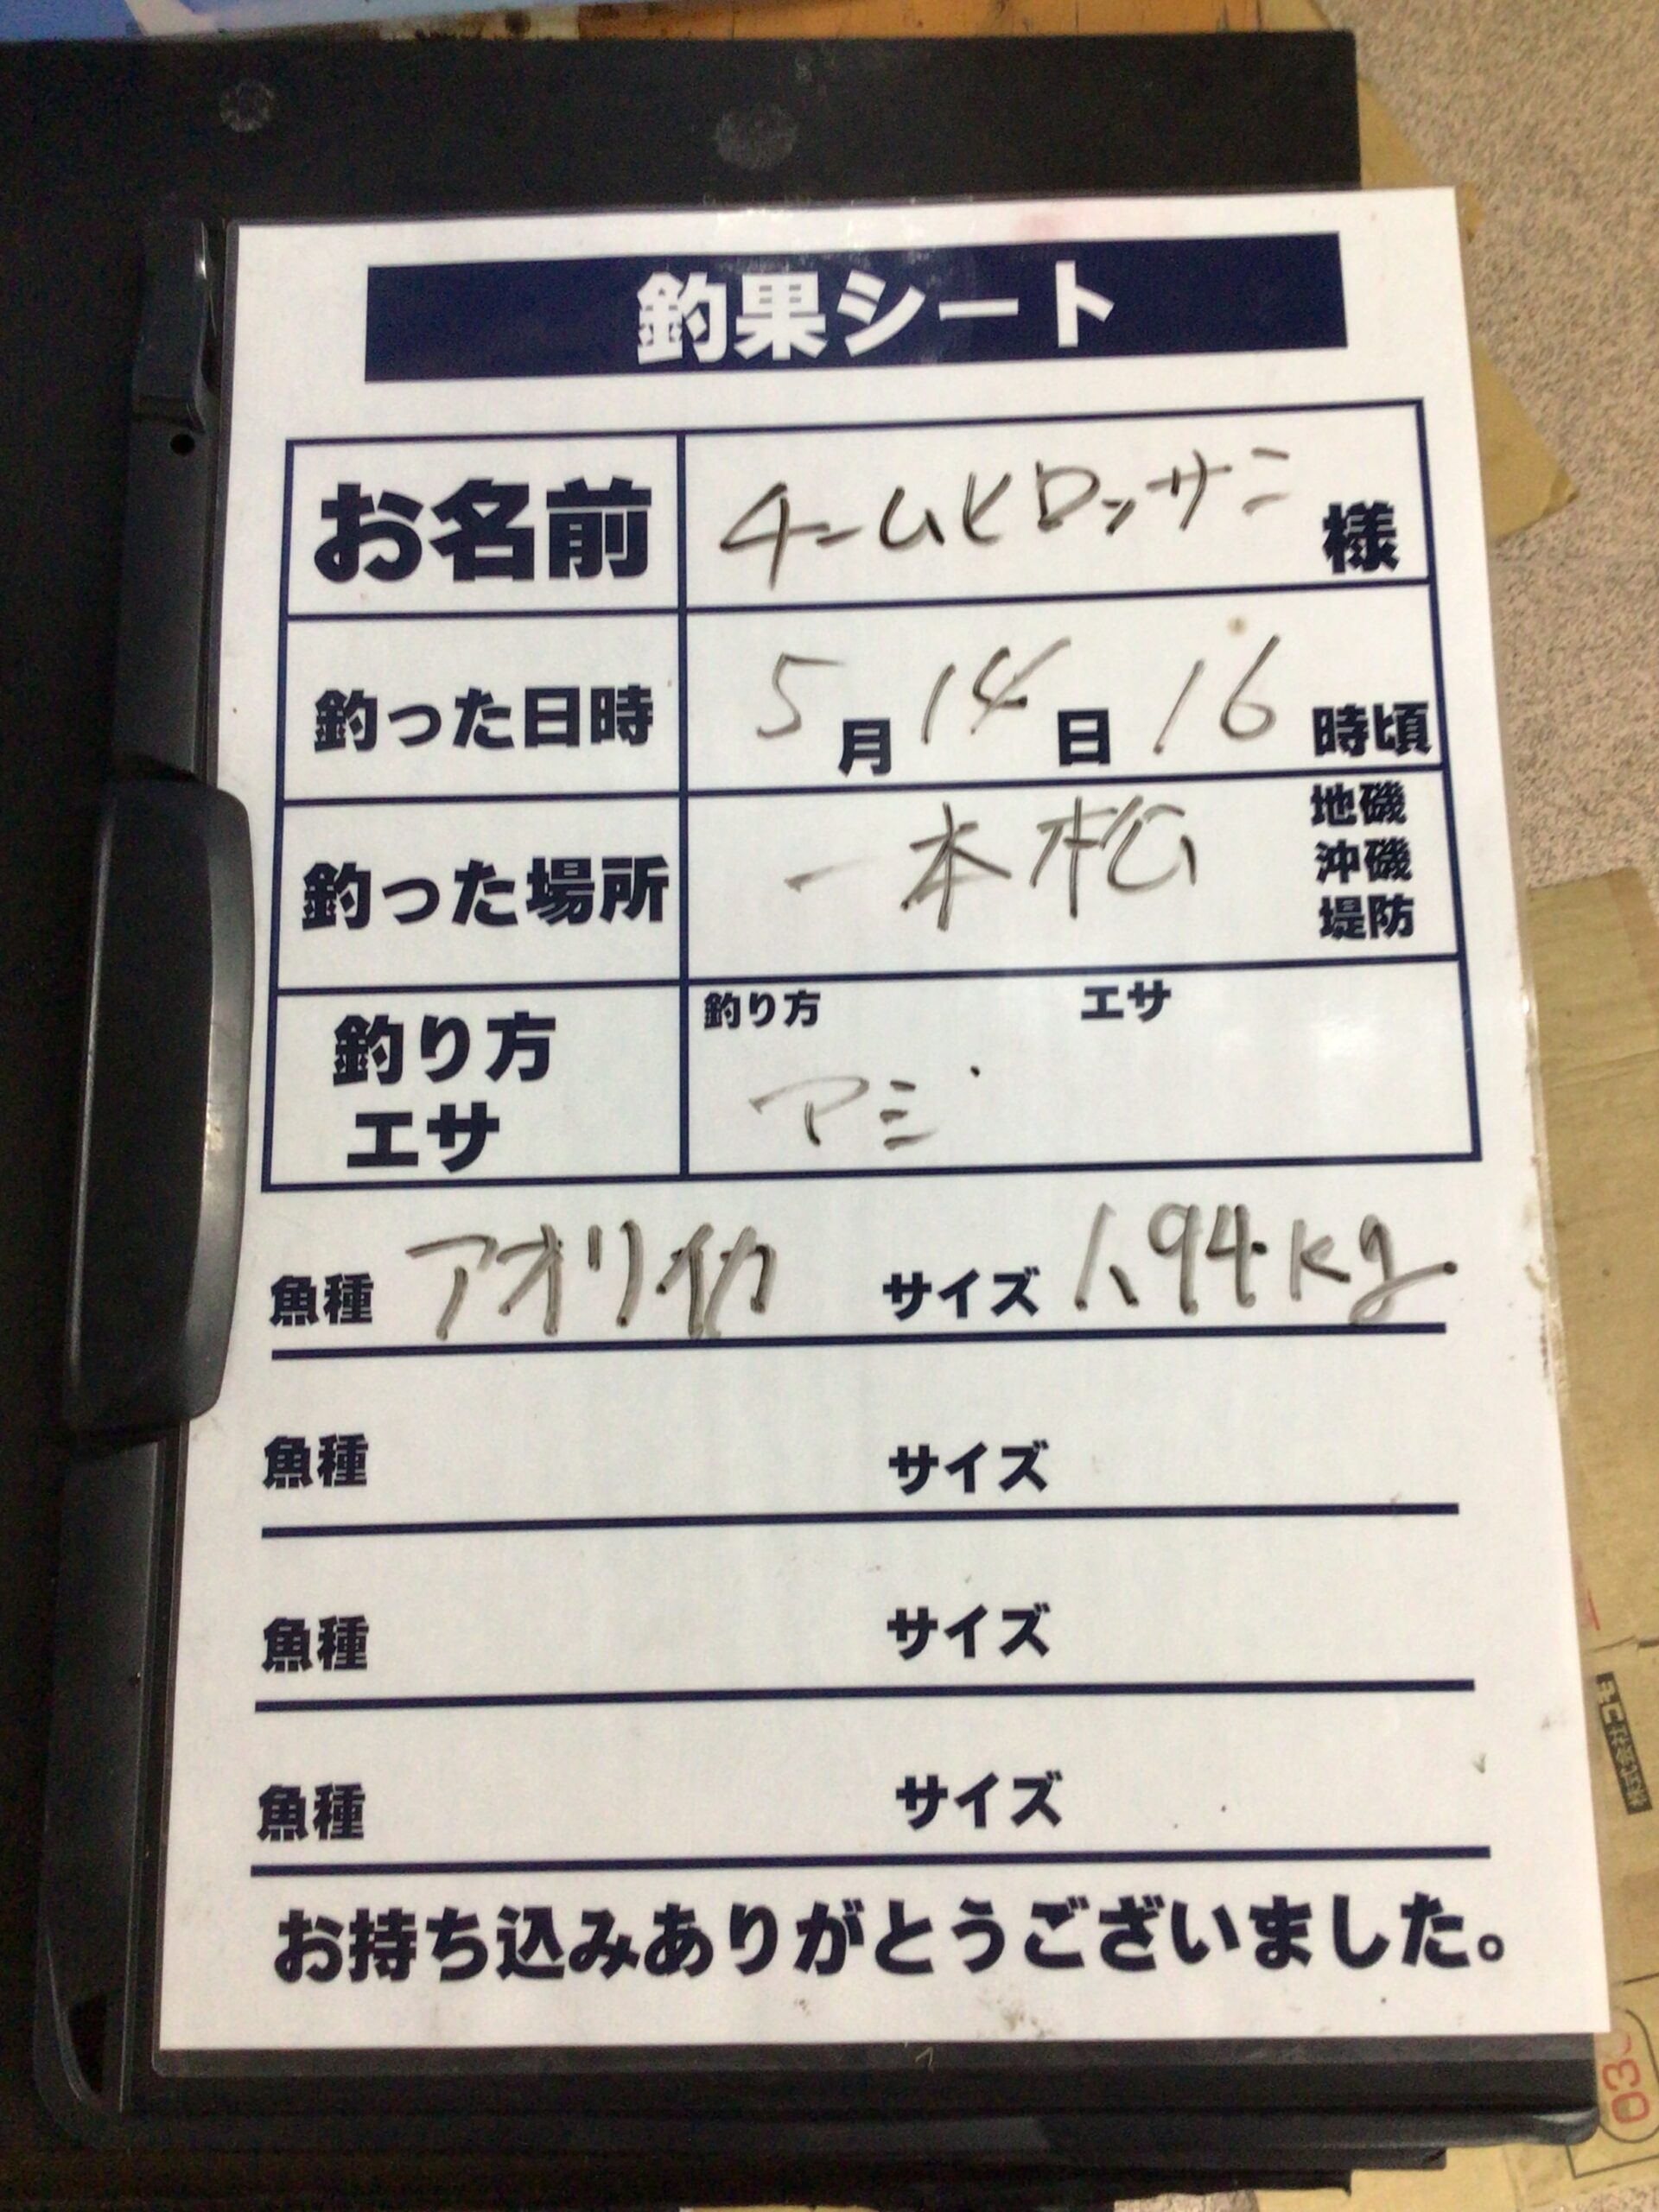 釣果シート
お名前 チームヒロッサン 様
釣った日時 5月14日16時頃
釣った場所 一本松 地磯 沖磯 堤防
釣り方 エサ
釣り方 エサ
アジ
魚種 アオリイカ サイズ 1.94kg
魚種 サイズ
魚種 サイズ
魚種 サイズ
お持ち込みありがとうございました。